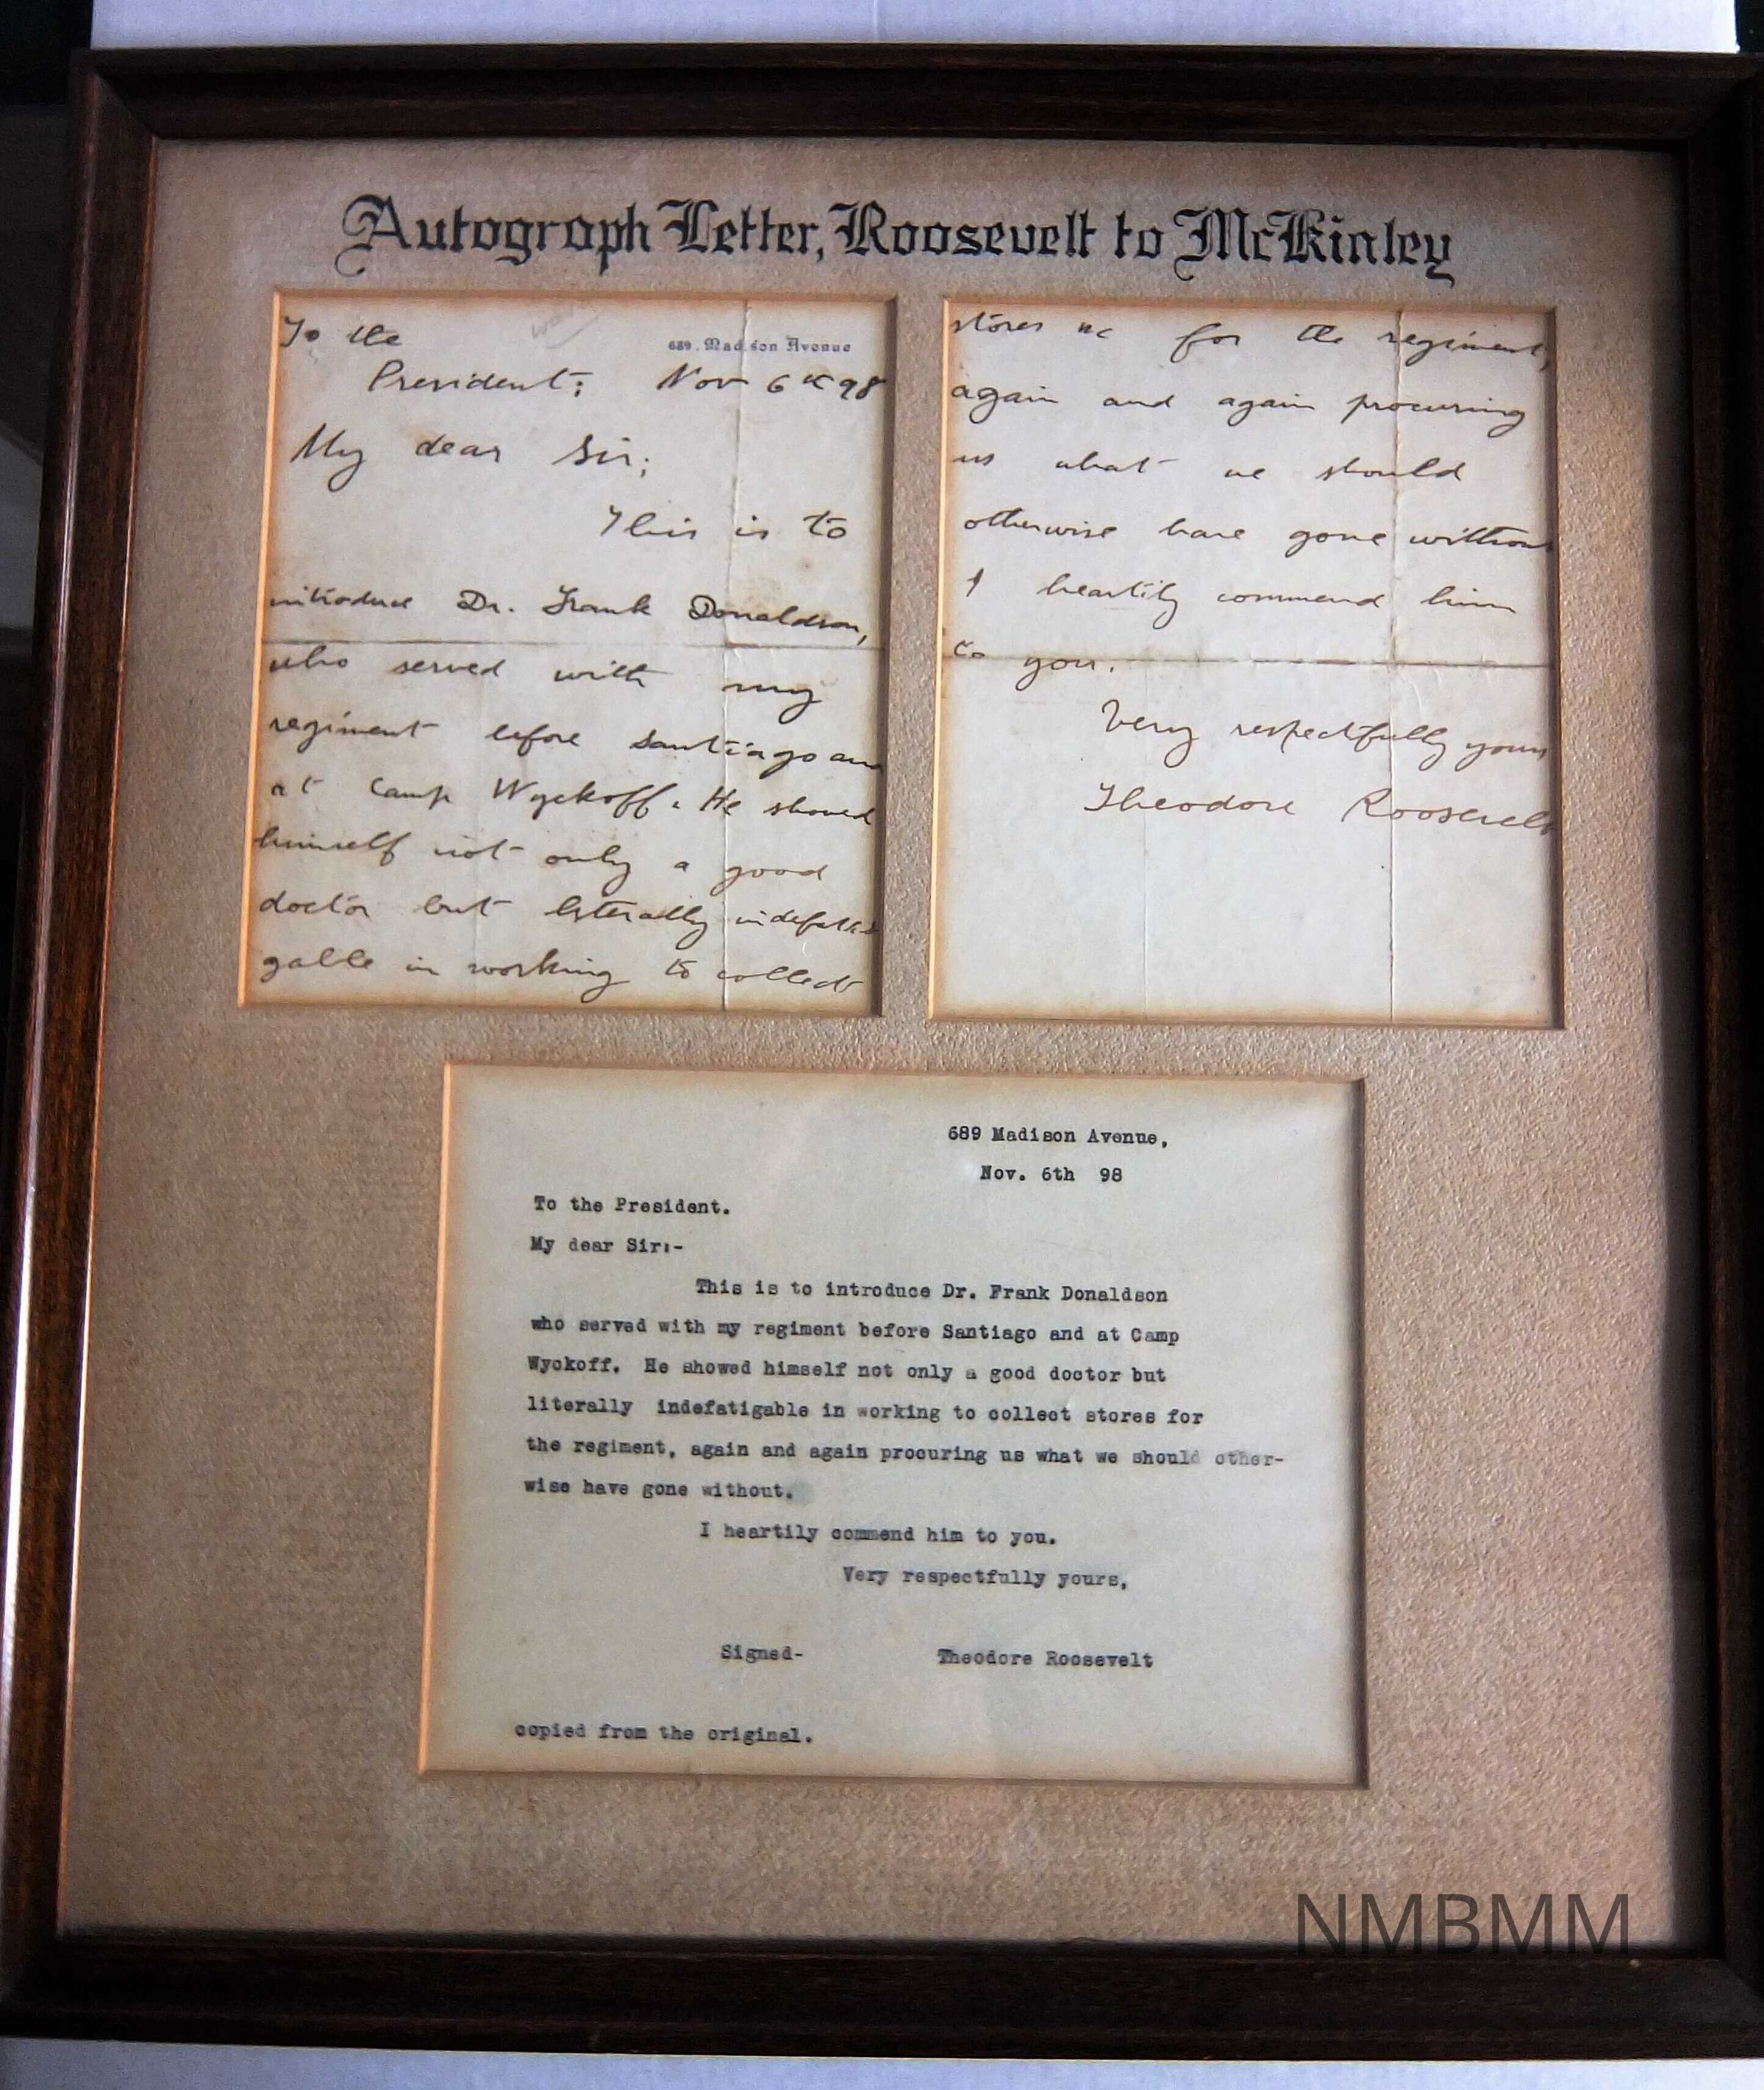 Autograph Letter, Roosevelt to McKinley
To the
689. Madison Avenue
President; Nov 6th 98
My dear Sir;
This is to
introduce Dr. Frank Donaldson,
who served with my
regiment before Santiago and
at Camp Wyckoff. He showed
himself not only a good
doctor but literally indefati
gable in working to collect
stores &c for the regiment,
again and again procuring
us what we should
otherwise have gone without
I heartily commend him
to you.
Very respectfully yours
Theodore Roosevelt
689 Madison Avenue,
Nov. 6th 98
To the President.
My dear Sir:-
This is to introduce Dr. Frank Donaldson
who served with my regiment before Santiago and at Camp
Wyokoff. He showed himself not only a good doctor but
literally indefatigable in working to collect stores for
the regiment, again and again procuring us what we should other-
wise have gone without.
I heartily commend him to you.
Very respectfully yours,
Signed- Theodore Roosevelt
copied from the original.
NMBMM